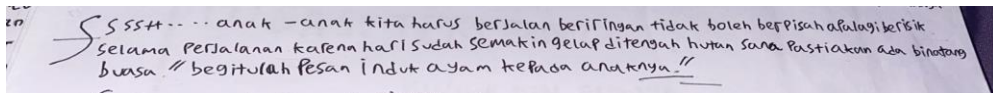 SSSSH..... anak - anak kita harus berjalan beriringan tidak boleh berpisah apalagi berisik
selama perjalanan karena hari sudah semakin gelap ditengah hutan sana pasti akan ada binatang
buasa " begitulah pesan induk ayam kepada anaknya."